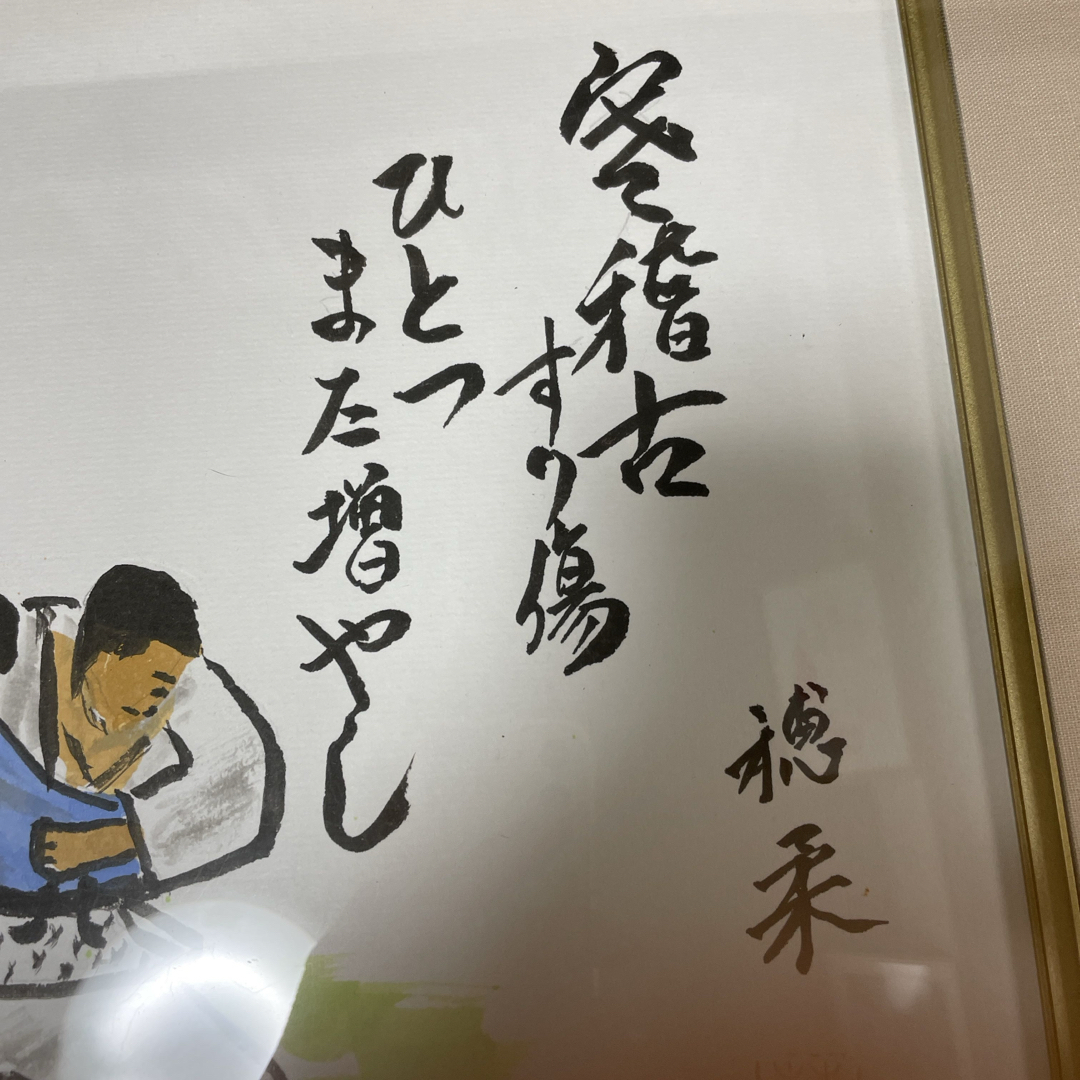 寒稽古
すり傷
ひとつ
また増やし
穂柔